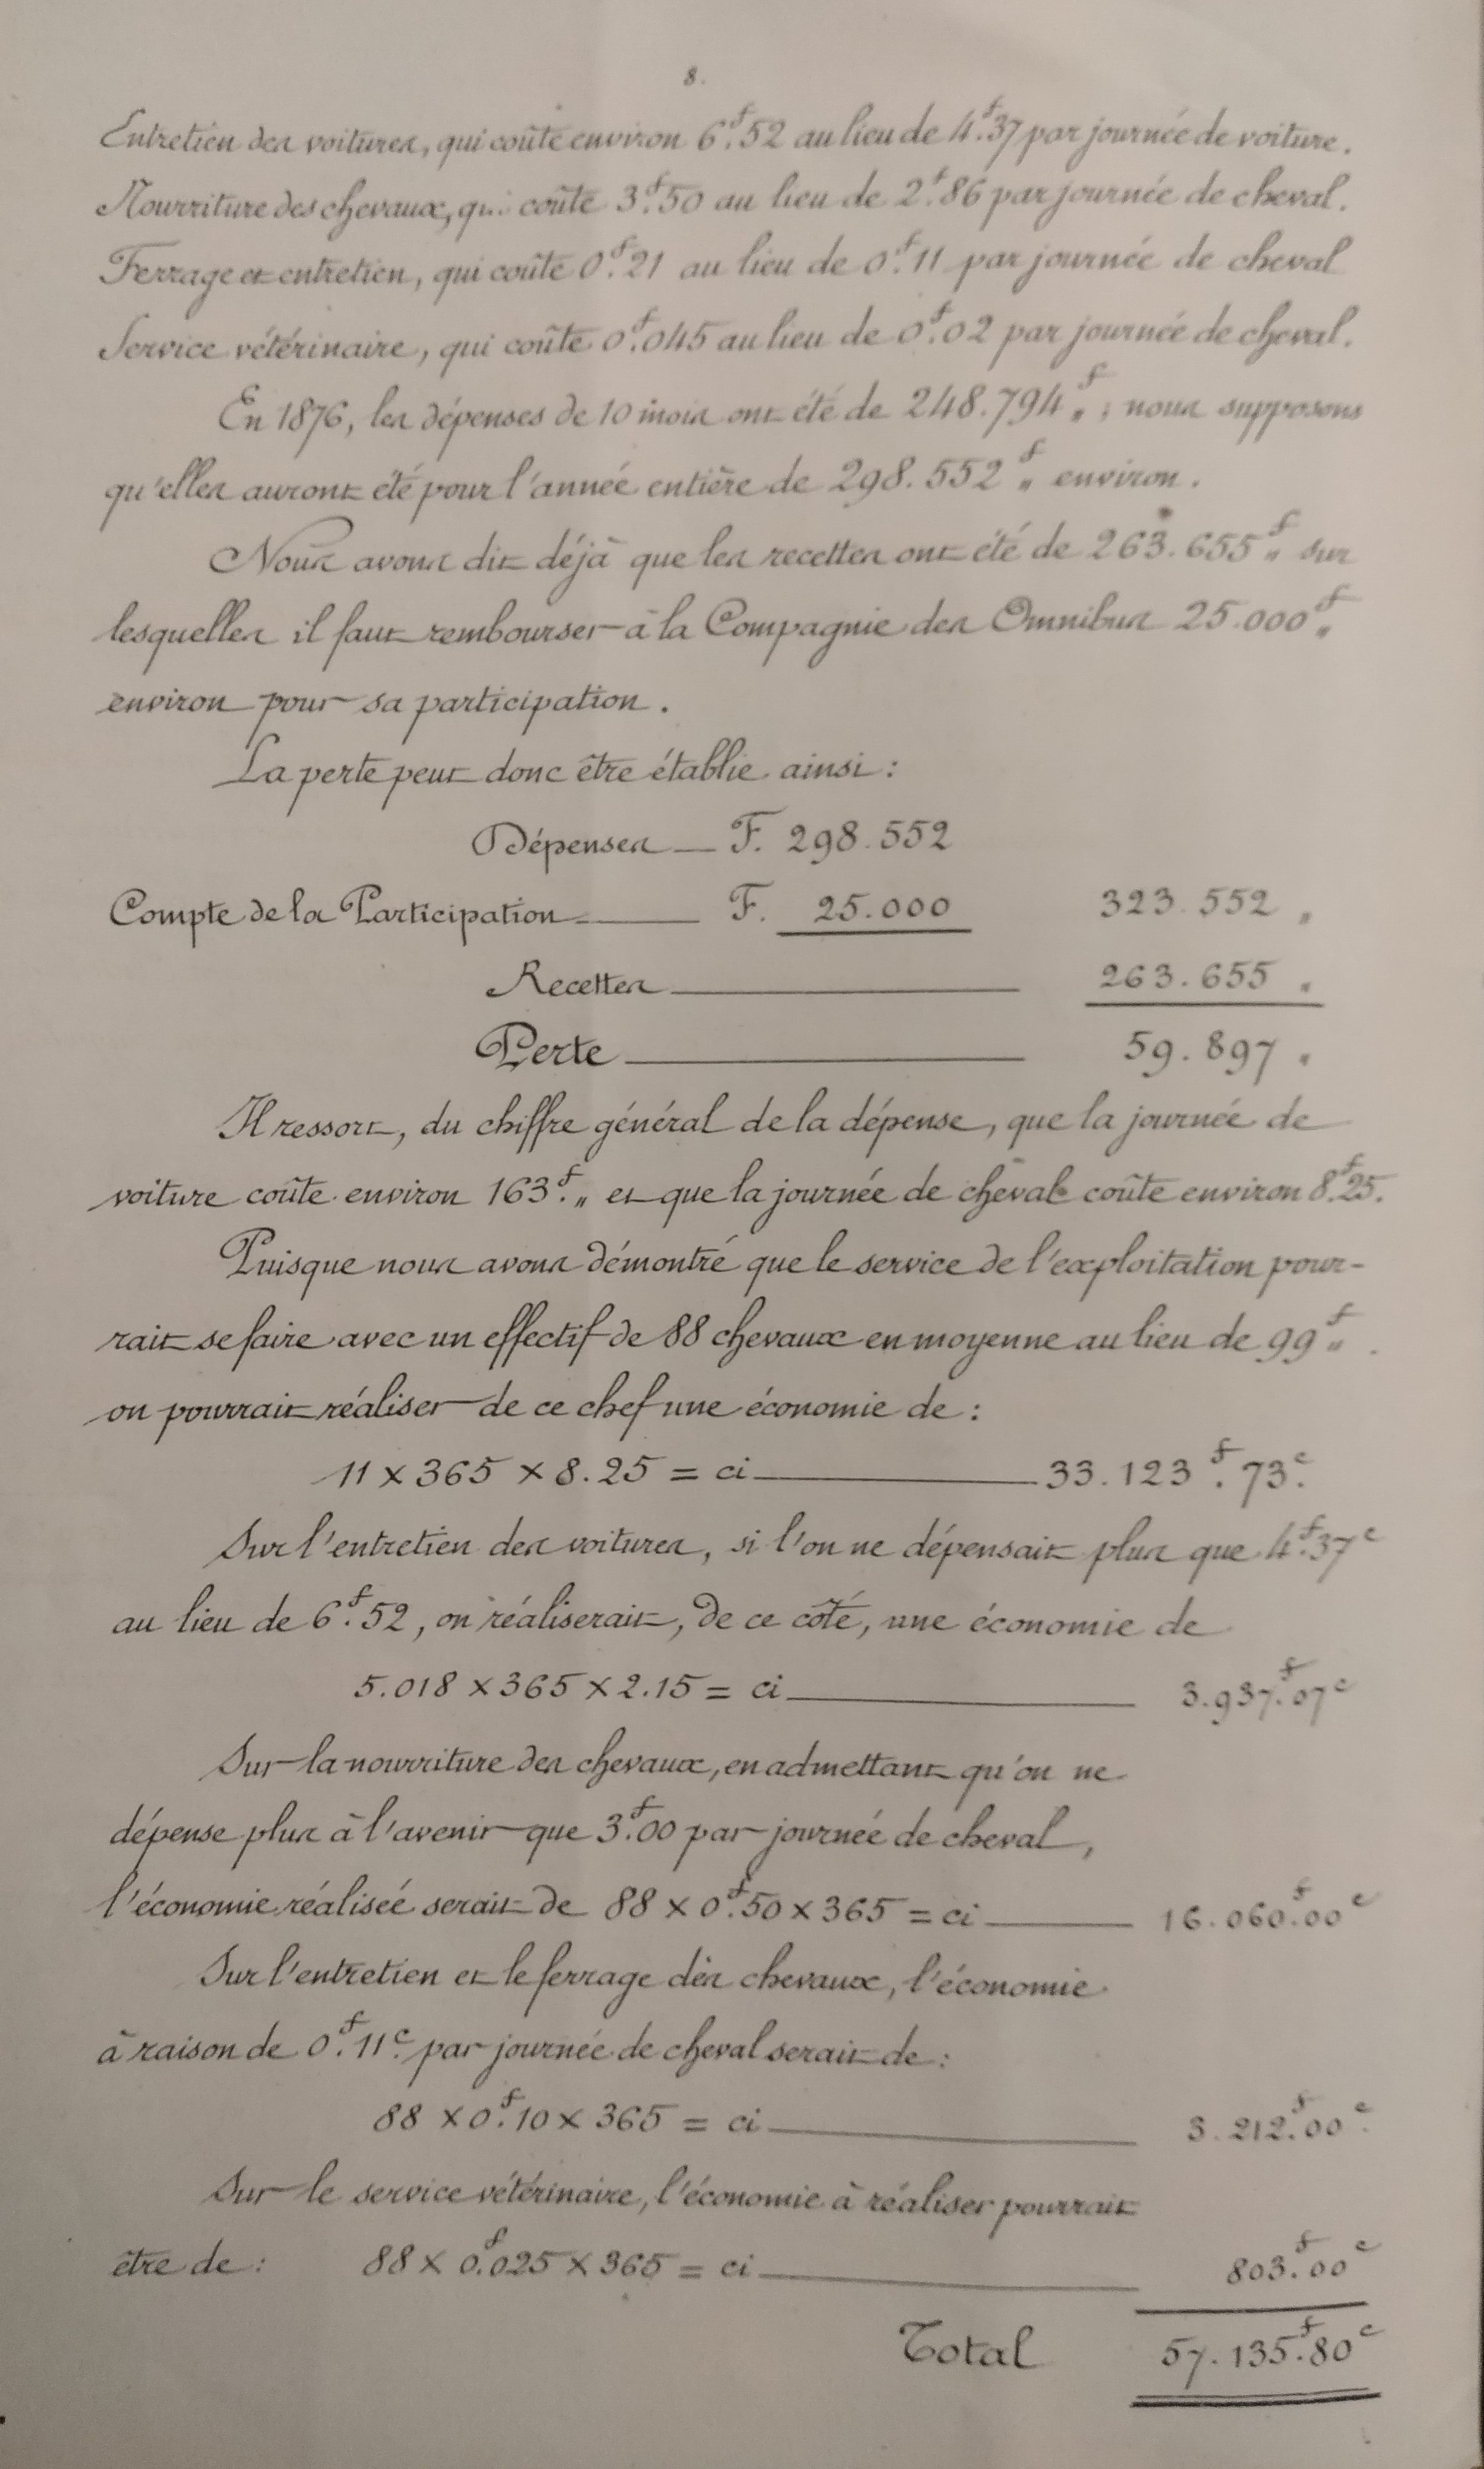 8.
Entretien des voitures, qui coûte environ 6f.52 au lieu de 4f.37 par journée de voiture.
Nourriture des chevaux, qui coûte 3f.50 au lieu de 2f.86 par journée de cheval.
Ferrage et entretien, qui coûte 0f.21 au lieu de 0f.11 par journée de cheval
Service vétérinaire, qui coûte 0f.045 au lieu de 0f.02 par journée de cheval.
En 1876, les dépenses de 10 mois ont été de 248.794f. „ ; nous supposons
qu'elles auront été pour l'année entière de 298.552f „ environ.
Nous avons dit déjà que les recettes ont été de 263.655f „ sur
lesquelles il faut rembourser à la Compagnie des Omnibus 25.000f „
environ pour sa participation.
La perte peut donc être établie ainsi :
Dépenses — F. 298.552
Compte de la Participation — F. 25.000 323.552 „
Recettes — 263.655 „
Perte — 59.897 „
Il ressort, du chiffre général de la dépense, que la journée de
voiture coûte environ 163f. „ et que la journée de cheval coûte environ 8f.25.
Puisque nous avons démontré que le service de l'exploitation pour-
rait se faire avec un effectif de 88 chevaux en moyenne au lieu de 99f „ .
on pourrait réaliser de ce chef une économie de :
11 x 365 x 8.25 = ci — 33.123f.73c.
Sur l'entretien des voitures, si l'on ne dépensait plus que 4f.37c
au lieu de 6f.52, on réaliserait, de ce côté, une économie de
5.018 x 365 x 2.15 = ci — 3.937f.07c
Sur la nourriture des chevaux, en admettant qu'on ne
dépense plus à l'avenir que 3f.00 par journée de cheval,
l'économie réalisée serait de 88 x 0f.50 x 365 = ci — 16.060f.00c
Sur l'entretien et le ferrage des chevaux, l'économie
à raison de 0f.11c. par journée de cheval serait de :
88 x 0f.10 x 365 = ci — 3.212f.00c.
Sur le service vétérinaire, l'économie à réaliser pourrait
être de : 88 x 0f.025 x 365 = ci — 803f.00c
Total 57.135f.80c